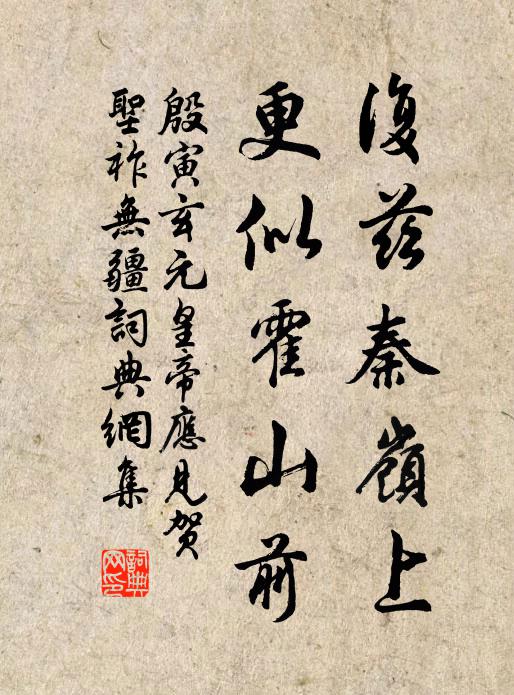 復茲秦嶺上
更似霍山前
殷寅玄元皇帝應見賀
聖祚無疆詞典網集
詞典网印